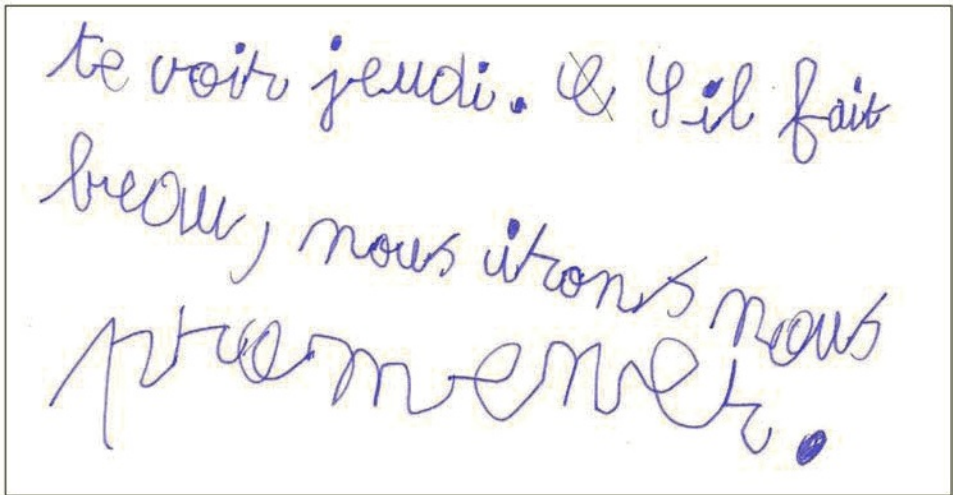 te voir jeudi. S'il fait
beau, nous irons nous
promener.